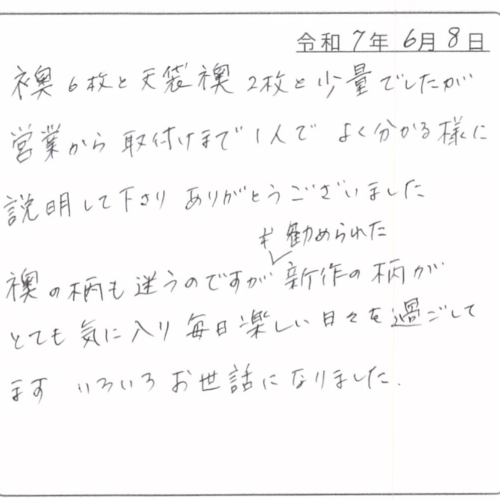 令和7年6月8日
襖6枚と天袋襖2枚と少量でしたが
営業から取付けまで1人でよく分かる様に
説明して下さりありがとうございました
も勧められた
襖の柄も迷うのですが新作の柄が
とても気に入り毎日楽しい日々を過ごして
ます いろいろお世話になりました.